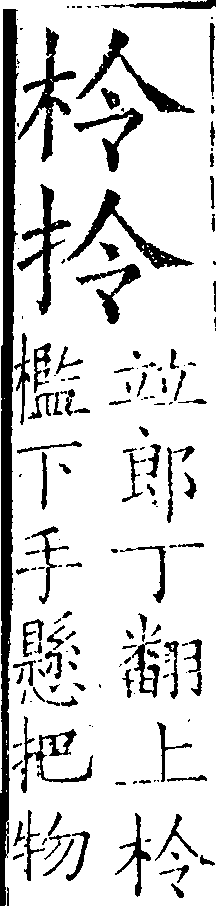 柃拎
並郎丁翻上柃
檻下手懸把物